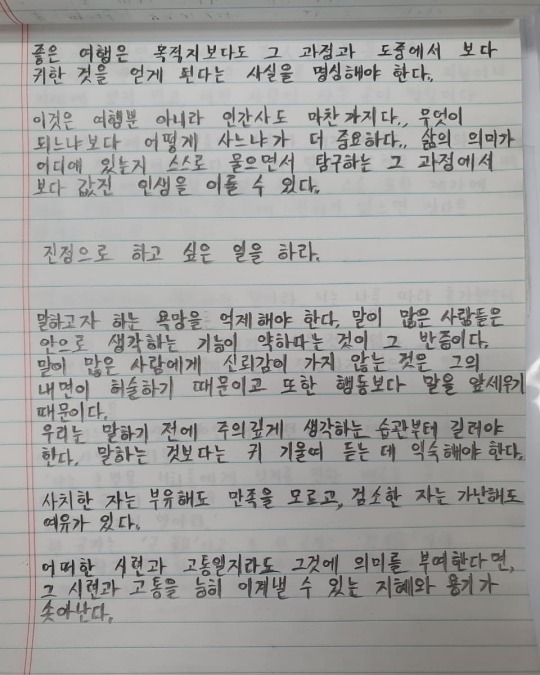 좋은 여행은 목적지보다도 그 과정과 도중에서 보다
귀한 것을 얻게 된다는 사실을 명심해야 한다.
이것은 여행뿐 아니라 인간사도 마찬가지다. 무엇이
되느냐보다 어떻게 사느냐가 더 중요하다. 삶의 의미가
어디에 있는지 스스로 물으면서 탐구하는 그 과정에서
보다 값진 인생을 이룰 수 있다.
진정으로 하고 싶은 일을 하라.
말하고자 하는 욕망을 억제해야 한다. 말이 많은 사람들은
안으로 생각하는 기능이 약하다는 것이 그 반증이다.
말이 많은 사람에게 신뢰감이 가지 않는 것은 그의
내면이 허술하기 때문이고 또한 행동보다 말을 앞세우기
때문이다.
우리는 말하기 전에 주의깊게 생각하는 습관부터 길러야
한다. 말하는 것보다는 귀 기울여 듣는 데 익숙해야 한다.
사치한 자는 부유해도 만족을 모르고, 검소한 자는 가난해도
여유가 있다.
어떠한 시련과 고통일지라도 그것에 의미를 부여한다면,
그 시련과 고통을 능히 이겨낼 수 있는 지혜와 용기가
솟아난다.